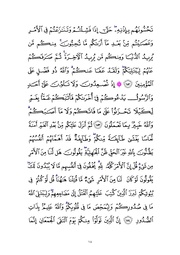 تَحُسُّونَهُم بِإِذْنِهِۦ حَتَّىٰٓ إِذَا فَشِلْتُمْ وَتَنَٰزَعْتُمْ فِى ٱلْأَمْرِ
وَعَصَيْتُم مِّنۢ بَعْدِ مَآ أَرَىٰكُم مَّا تُحِبُّونَ مِنكُم مَّن
يُرِيدُ ٱلدُّنْيَا وَمِنكُم مَّن يُرِيدُ ٱلْءَاخِرَةَ ثُمَّ صَرَفَكُمْ
عَنْهُمْ لِيَبْتَلِيَكُمْ وَلَقَدْ عَفَا عَنكُمْ وَٱللَّهُ ذُو فَضْلٍ عَلَى
ٱلْمُؤْمِنِينَ ۞ إِذْ تُصْعِدُونَ وَلَا تَلْوُۥنَ عَلَىٰٓ أَحَدٍ
وَٱلرَّسُولُ يَدْعُوكُمْ فِىٓ أُخْرَىٰكُمْ فَأَثَٰبَكُمْ غَمًّۢا بِغَمٍّ
لِّكَيْلَا تَحْزَنُوا۟ عَلَىٰ مَا فَاتَكُمْ وَلَا مَآ أَصَٰبَكُمْ
وَٱللَّهُ خَبِيرٌۢ بِمَا تَعْمَلُونَ ثُمَّ أَنزَلَ عَلَيْكُم مِّنۢ بَعْدِ ٱلْغَمِّ أَمَنَةً
نُّعَاسًا يَغْشَىٰ طَآئِفَةً مِّنكُمْ وَطَآئِفَةٌ قَدْ أَهَمَّتْهُمْ أَنفُسُهُمْ
يَظُنُّونَ بِٱللَّهِ غَيْرَ ٱلْحَقِّ ظَنَّ ٱلْجَٰهِلِيَّةِ يَقُولُونَ هَل لَّنَا مِنَ ٱلْأَمْرِ
مِن شَىْءٍ قُلْ إِنَّ ٱلْأَمْرَ كُلَّهُۥ لِلَّهِ يُخْفُونَ فِىٓ أَنفُسِهِم مَّا لَا يُبْدُونَ لَكَ
يَقُولُونَ لَوْ كَانَ لَنَا مِنَ ٱلْأَمْرِ شَىْءٌ مَّا قُتِلْنَا هَٰهُنَا قُل لَّوْ كُنتُمْ فِى
بُيُوتِكُمْ لَبَرَزَ ٱلَّذِينَ كُتِبَ عَلَيْهِمُ ٱلْقَتْلُ إِلَىٰ مَضَاجِعِهِمْ وَلِيَبْتَلِىَ ٱللَّهُ
مَا فِى صُدُورِكُمْ وَلِيُمَحِّصَ مَا فِى قُلُوبِكُمْ وَٱللَّهُ عَلِيمٌۢ بِذَاتِ
ٱلصُّدُورِ إِنَّ ٱلَّذِينَ تَوَلَّوْا۟ مِنكُمْ يَوْمَ ٱلْتَقَى ٱلْجَمْعَانِ إِنَّمَا